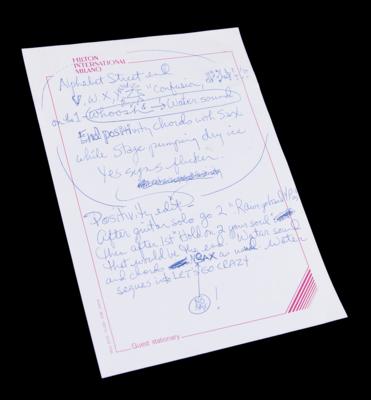 HILTON
INTERNATIONAL
MILANO
Alphabet Street end
V, W, X, "Confusion,
on the 1 - whoosh → Water sound
End positivity chords wol Sax
while stage pumping dry ice
Yes signs flicker.
Positivity edit -
After guitar solo go 2
then after 1st "Hold on 2 your soul"
that would be the end. Water sound
and chords SAX Water
segues in2 LET'S GO CRAZY
!
Guest stationary